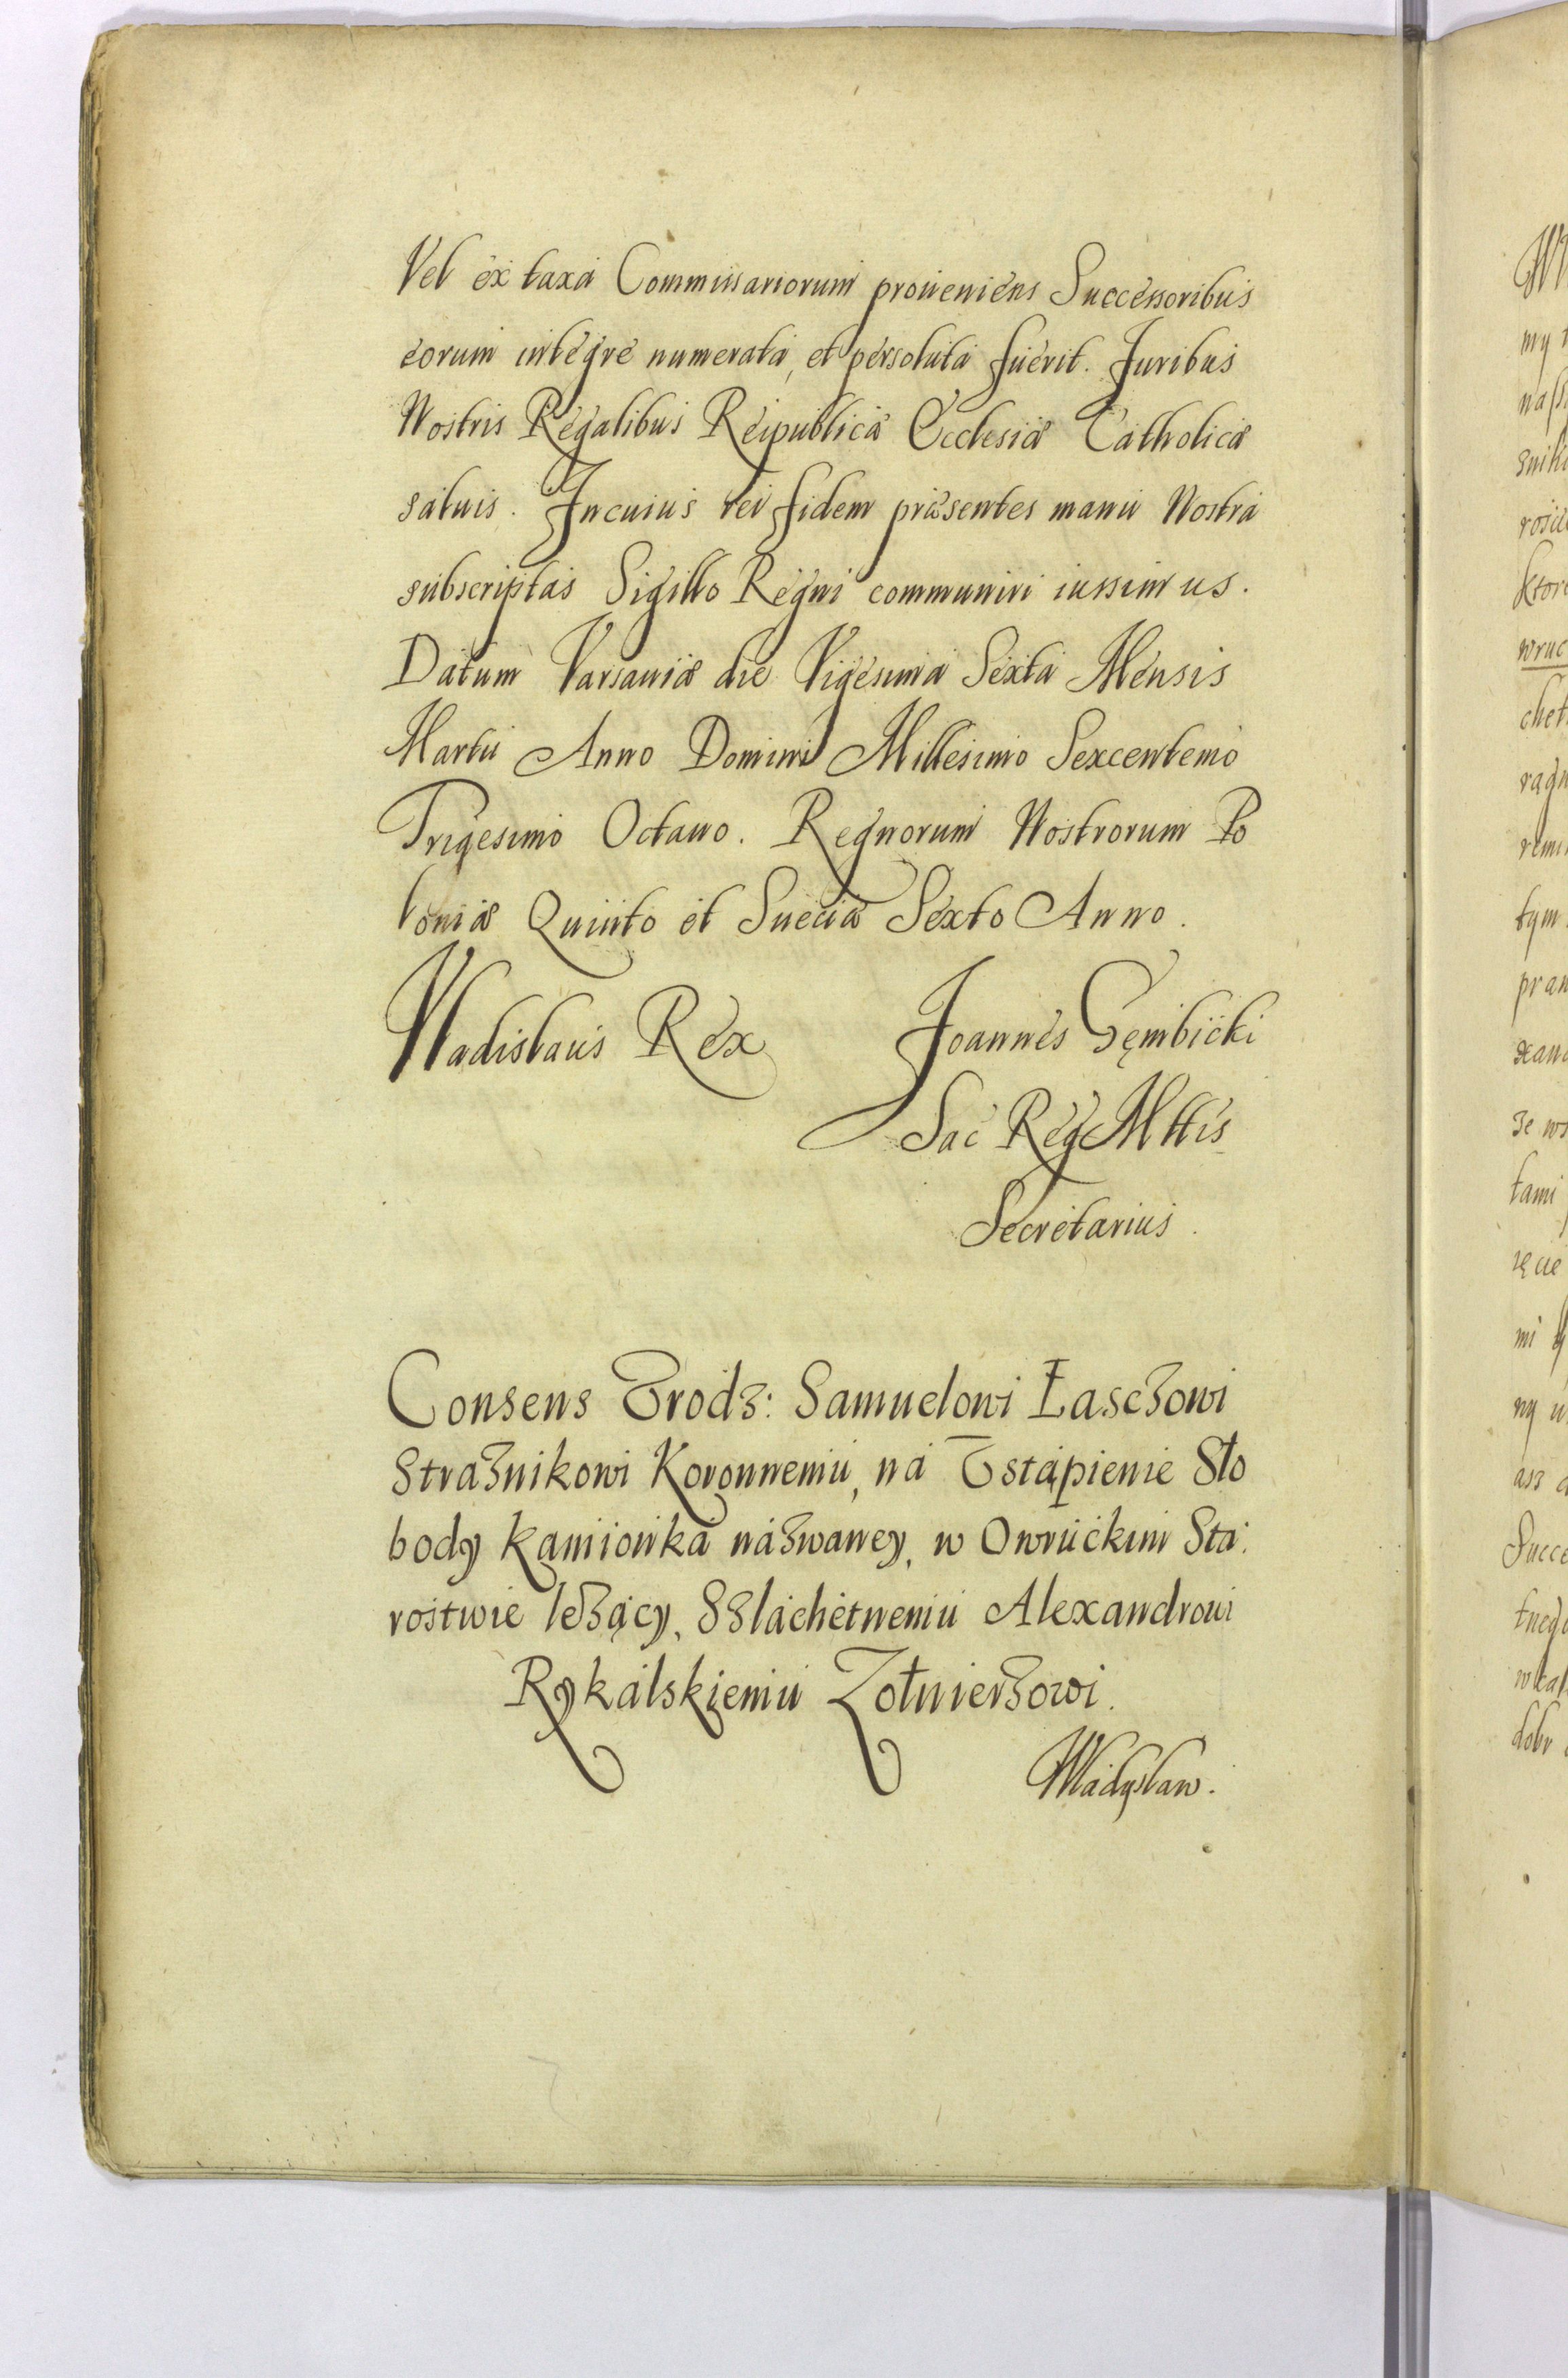 Vel ex taxa Commissariorum proueniens Successoribus
eorum integre numerata, et persoluta fuerit. Juribus
Nostris Regalibus Reipublicæ Ecclesiæ Catholicæ
saluis. Incuius rei fidem præsentes manu Nostra
subscriptas Sigillo Regni communiri iussimus.
Datum Varsauiæ die Vigesima Sexta Mensis
Martii Anno Domini Millesimo Sexcentemo
Trigesimo Octauo. Regnorum Nostrorum Po
loniæ Quinto et Sueciæ Sexto Anno.
Vladislaus Rex Joannes Gembicki
Sac Reg Mttis
Secretarius.
Consens Vrodz: Samuelowi Łasczowi
Strażnikowi Koronnemu, na Vstąpienie Sło
body Kamionka názwaney, w Owruckim Sta:
rostwie leżący, Szlachetnemu Alexandrowi
Rykalskiemu Żołnierzowi.
Władysław.